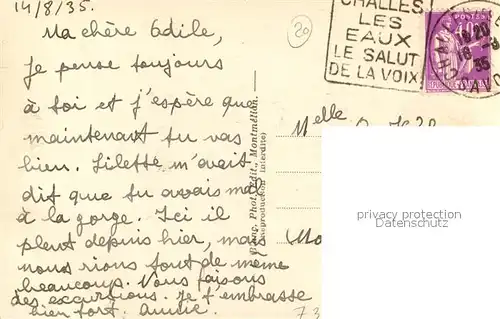 14/8/35.
Ma chère Odile,
je pense toujours
à toi et j'espère que
maintenant tu vas
bien. Lilette m'avait
dit que tu avais mal
à la gorge. Ici il
pleut depuis hier, mais
nous rions tout de même
beaucoup. Nous faisons
des excursions. Je t'embrasse
bien fort. Annie.
20
Phot. Edit., Montmélian.
(Reproduction interdite)
CHALLES
LES
EAUX
LE SALUT
DE LA VOIX
POSTES
35
Melle
73
privacy protection
Datenschutz